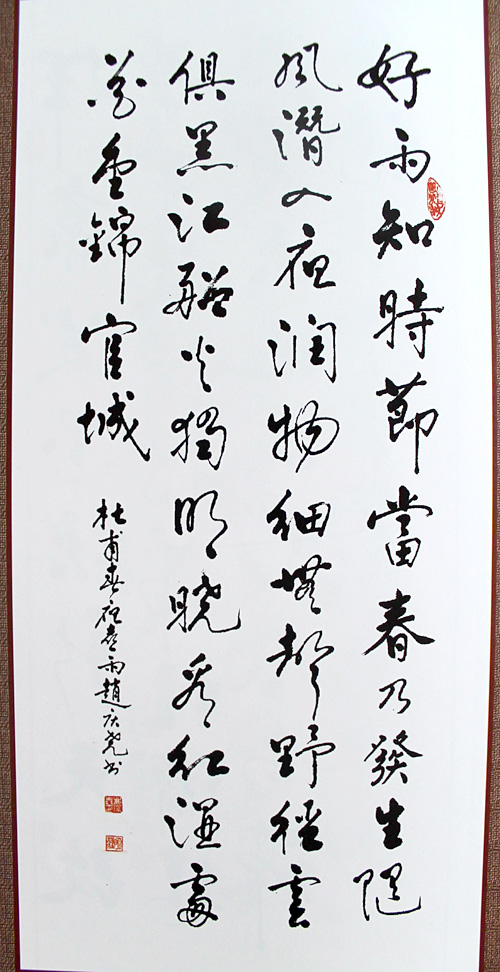 好雨知時節當春乃發生隨
風潛入夜润物細無聲野徑雲
俱黑江船火獨明曉看紅濕處
花重錦官城
杜甫春夜喜雨趙庆堯书